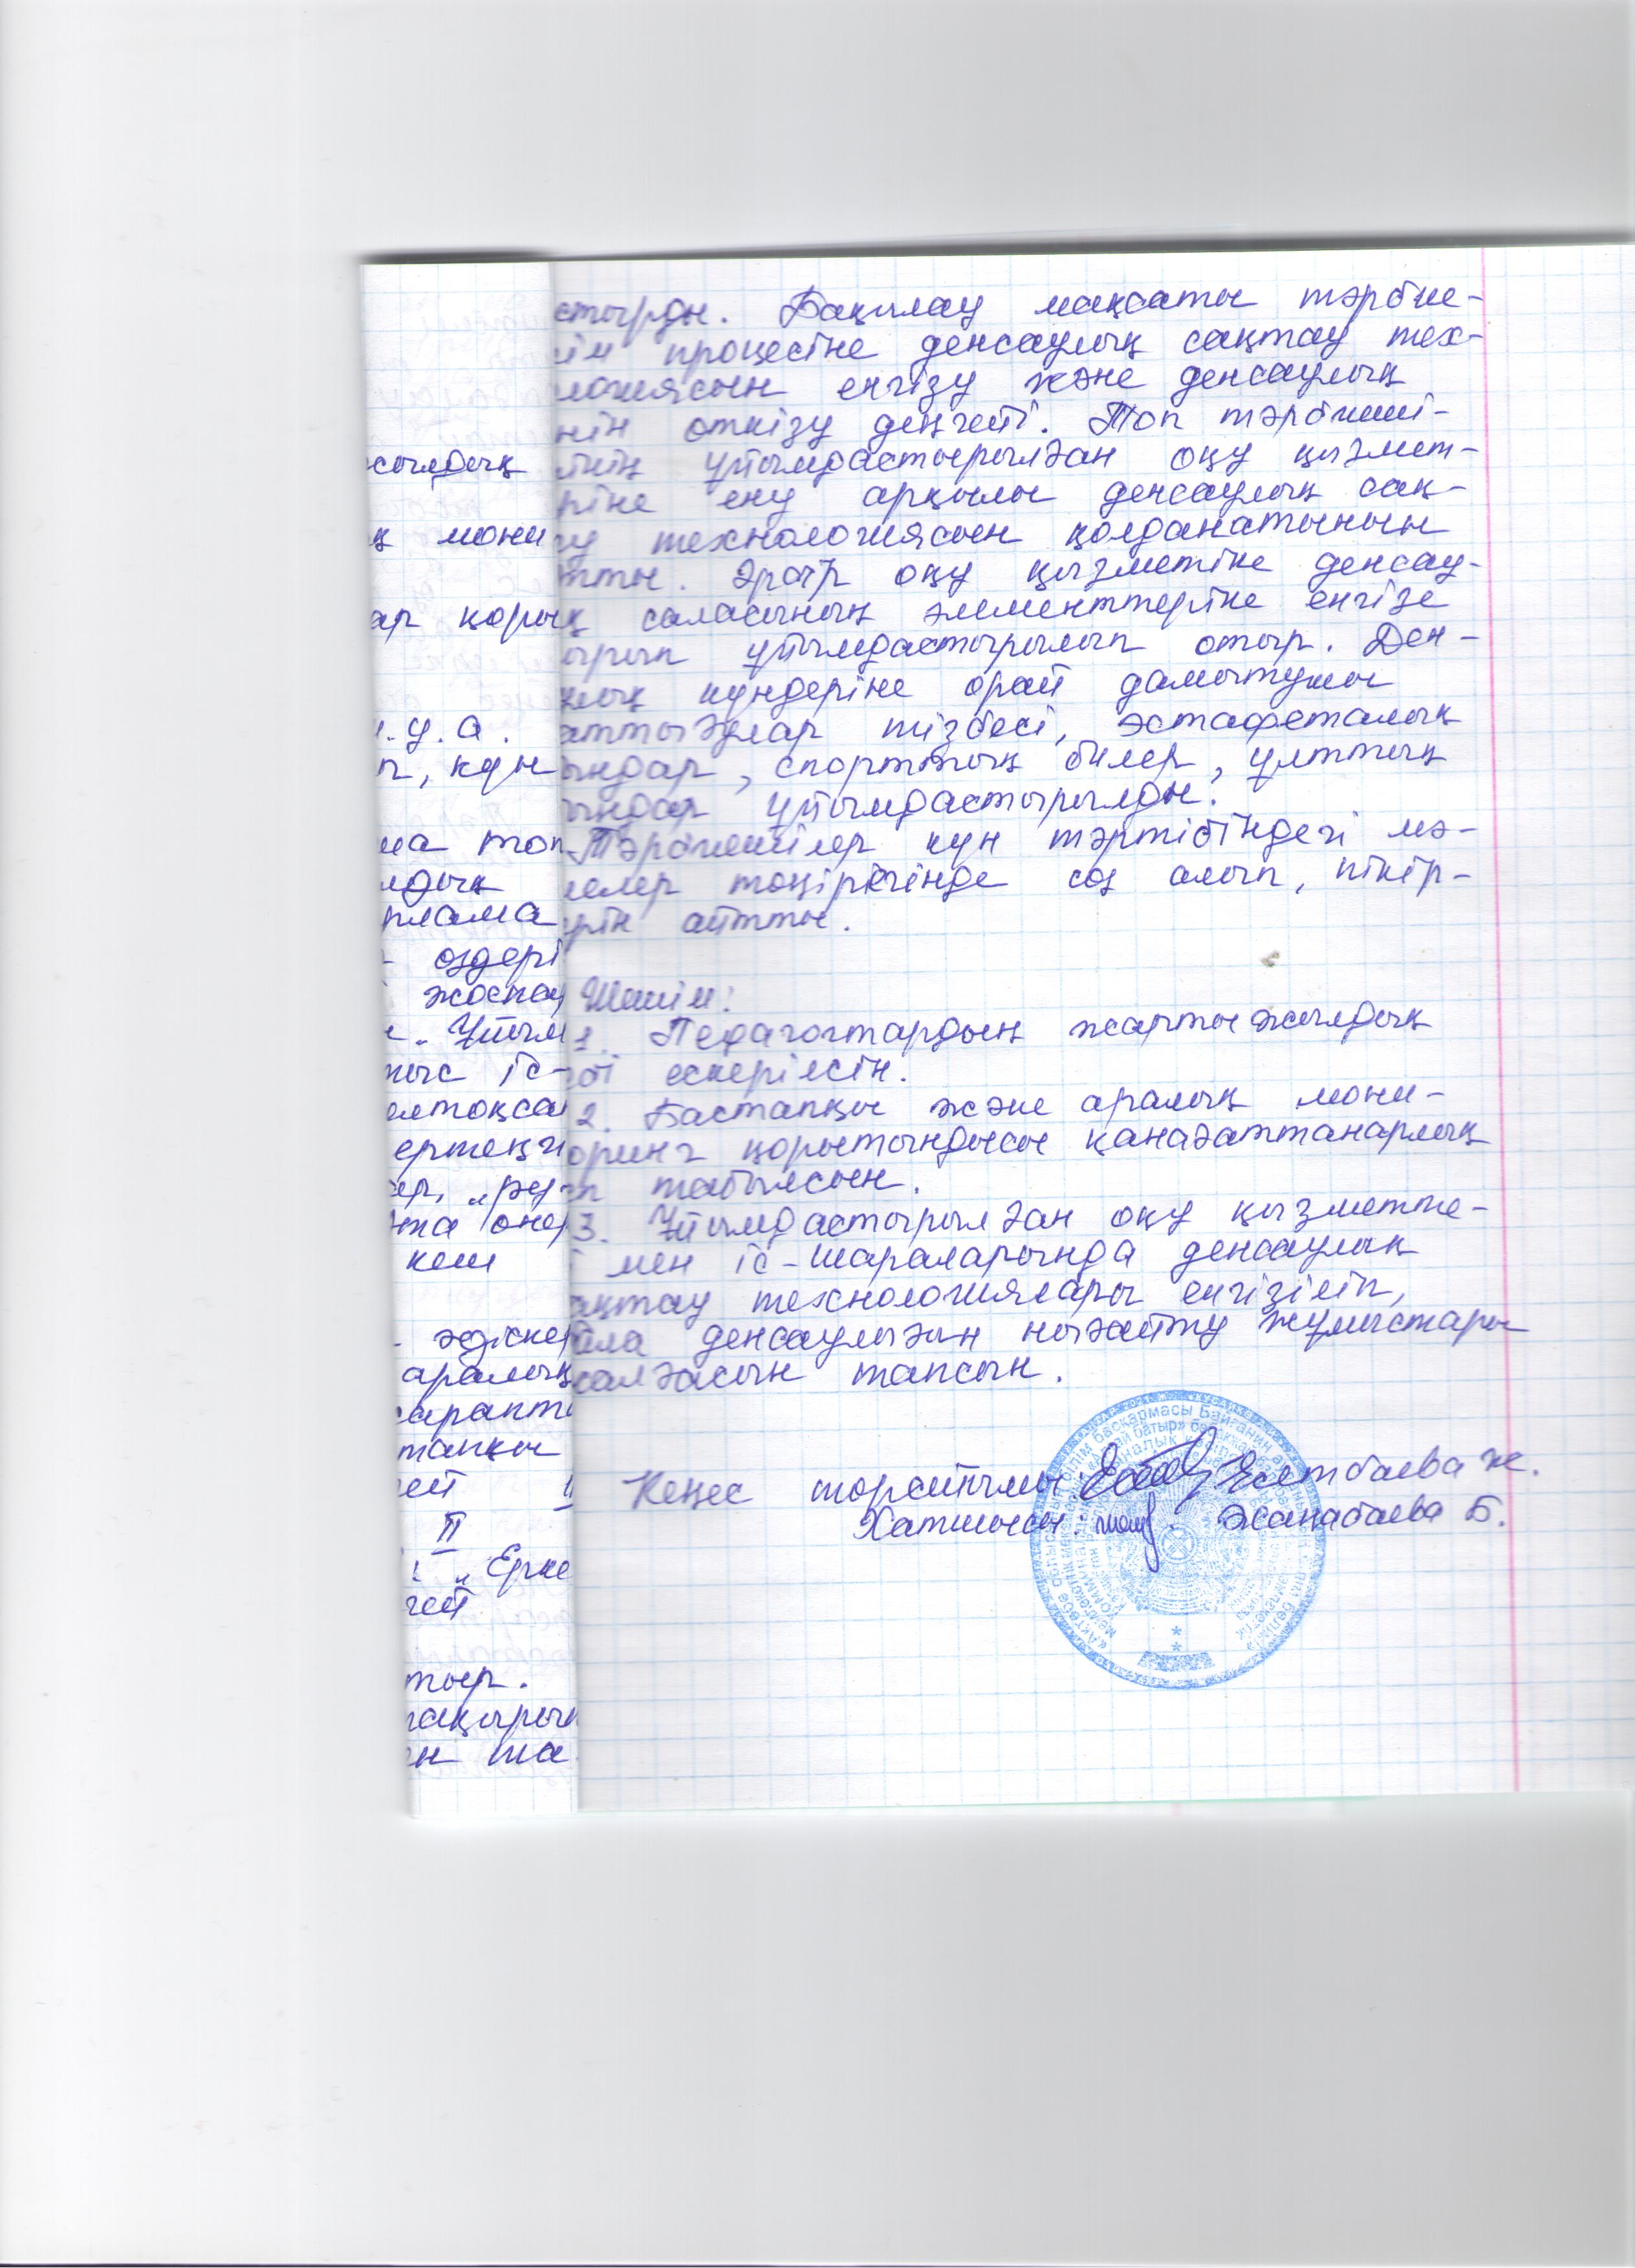 стырды. Бақылау мақсаты тәрбие-
ім процесіне денсаулық сақтау тех-
логиясын енгізу және денсаулық
нін өткізу деңгейі. Топ тәрбиеші-
інің ұйымдастырылған оқу қызмет-
ріне ену арқылы денсаулық сақ-
у технологиясын қолданатынын
тты. Әрбір оқу қызметіне денсау-
қ саласының элементтеріне енгізе
ырып ұйымдастырылып отыр. Ден-
лық күндеріне орай дамытушы
аттығулар тізбесі, эстафеталық
ындар, спорттық билер, ұлттық
ындар ұйымдастырылды.
Тәрбиешілер күн тәртібіндегі мә-
елер төңірегінде сөз алып, пікір-
рін айтты.
Шешім:
1. Педагогтардың жартыжылдық
бі ескерілсін.
2. Бастапқы және аралық мони-
оринг қорытындысы қанағаттанарлық
п табылсын.
3. Ұйымдастырылған оқу қызметте-
і мен іс-шараларында денсаулық
ақтау технологиялары енгізіліп,
ала денсаулығын нығайту жұмыстары
салғасын тапсын.
Кеңес төрайымы: Есетбаева Ж.
Хатшысы: Жаңабаева Б.
сылдық
қ мони
ар қоры
н.у.а.
п, күн
ма топ
лдық
плама
- өздері
жоспар
Ұйым
мыс іс-
елтоқса
ертеңгі
кеш
- әдіскер
аралық
саракт
тапқы
гей
II
"Ерке
гей
тыр.
ақырып
н ша